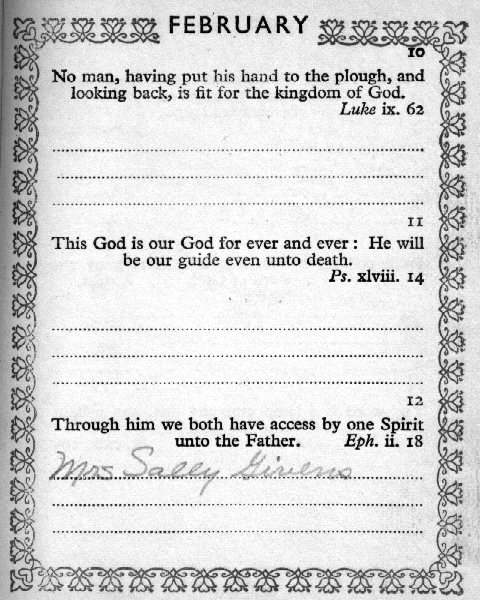 FEBRUARY
10
No man, having put his hand to the plough, and
looking back, is fit for the kingdom of God.
Luke ix. 62
11
This God is our God for ever and ever : He will
be our guide even unto death.
Ps. xlviii. 14
12
Through him we both have access by one Spirit
unto the Father. Eph. ii. 18
Mrs Sally Givens